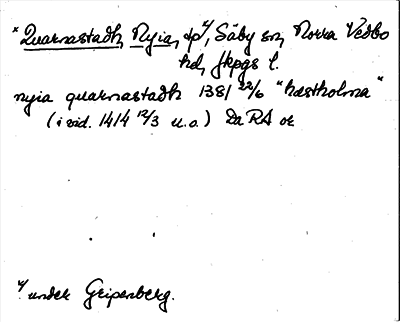 * Quarnastadh, Nyia, tp 1/, Säby sn, Norra Vedbo
hd, Jkpgs l.
nyia quarnastadh 1381 22/6 "hæstholma"
(i vid. 1414 12/3 u.o.) Da RA or
1/ under Gripenberg.